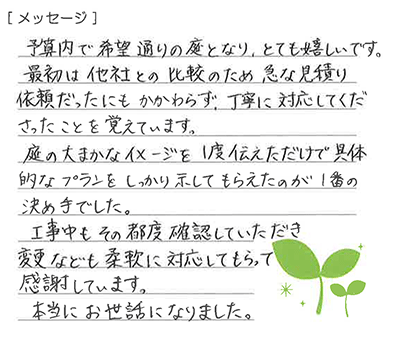 [ メッセージ ]
予算内で希望通りの庭となり、とても嬉しいです。
最初は他社との比較のため急な見積り
依頼だったにもかかわらず、丁寧に対応してくだ
さったことを覚えています。
庭の大まかなイメージを1度伝えただけで具体
的なプランをしっかり示してもらえたのが1番の
決め手でした。
工事中もその都度確認していただき
変更なども柔軟に対応してもらって
感謝しています。
本当にお世話になりました。